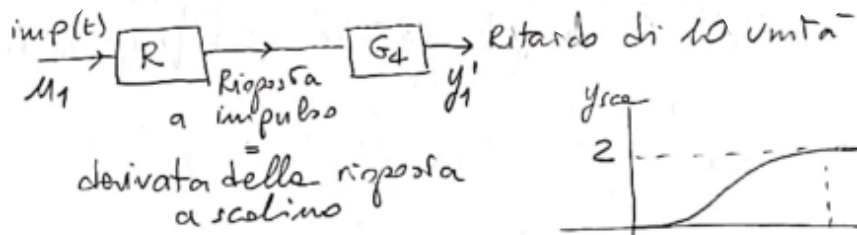 imp(t)
μ1
R
Risposta
a impulso
=
derivata della risposta
a scalino
G4
y1'
Ritardo di 10 unità
ysca
2